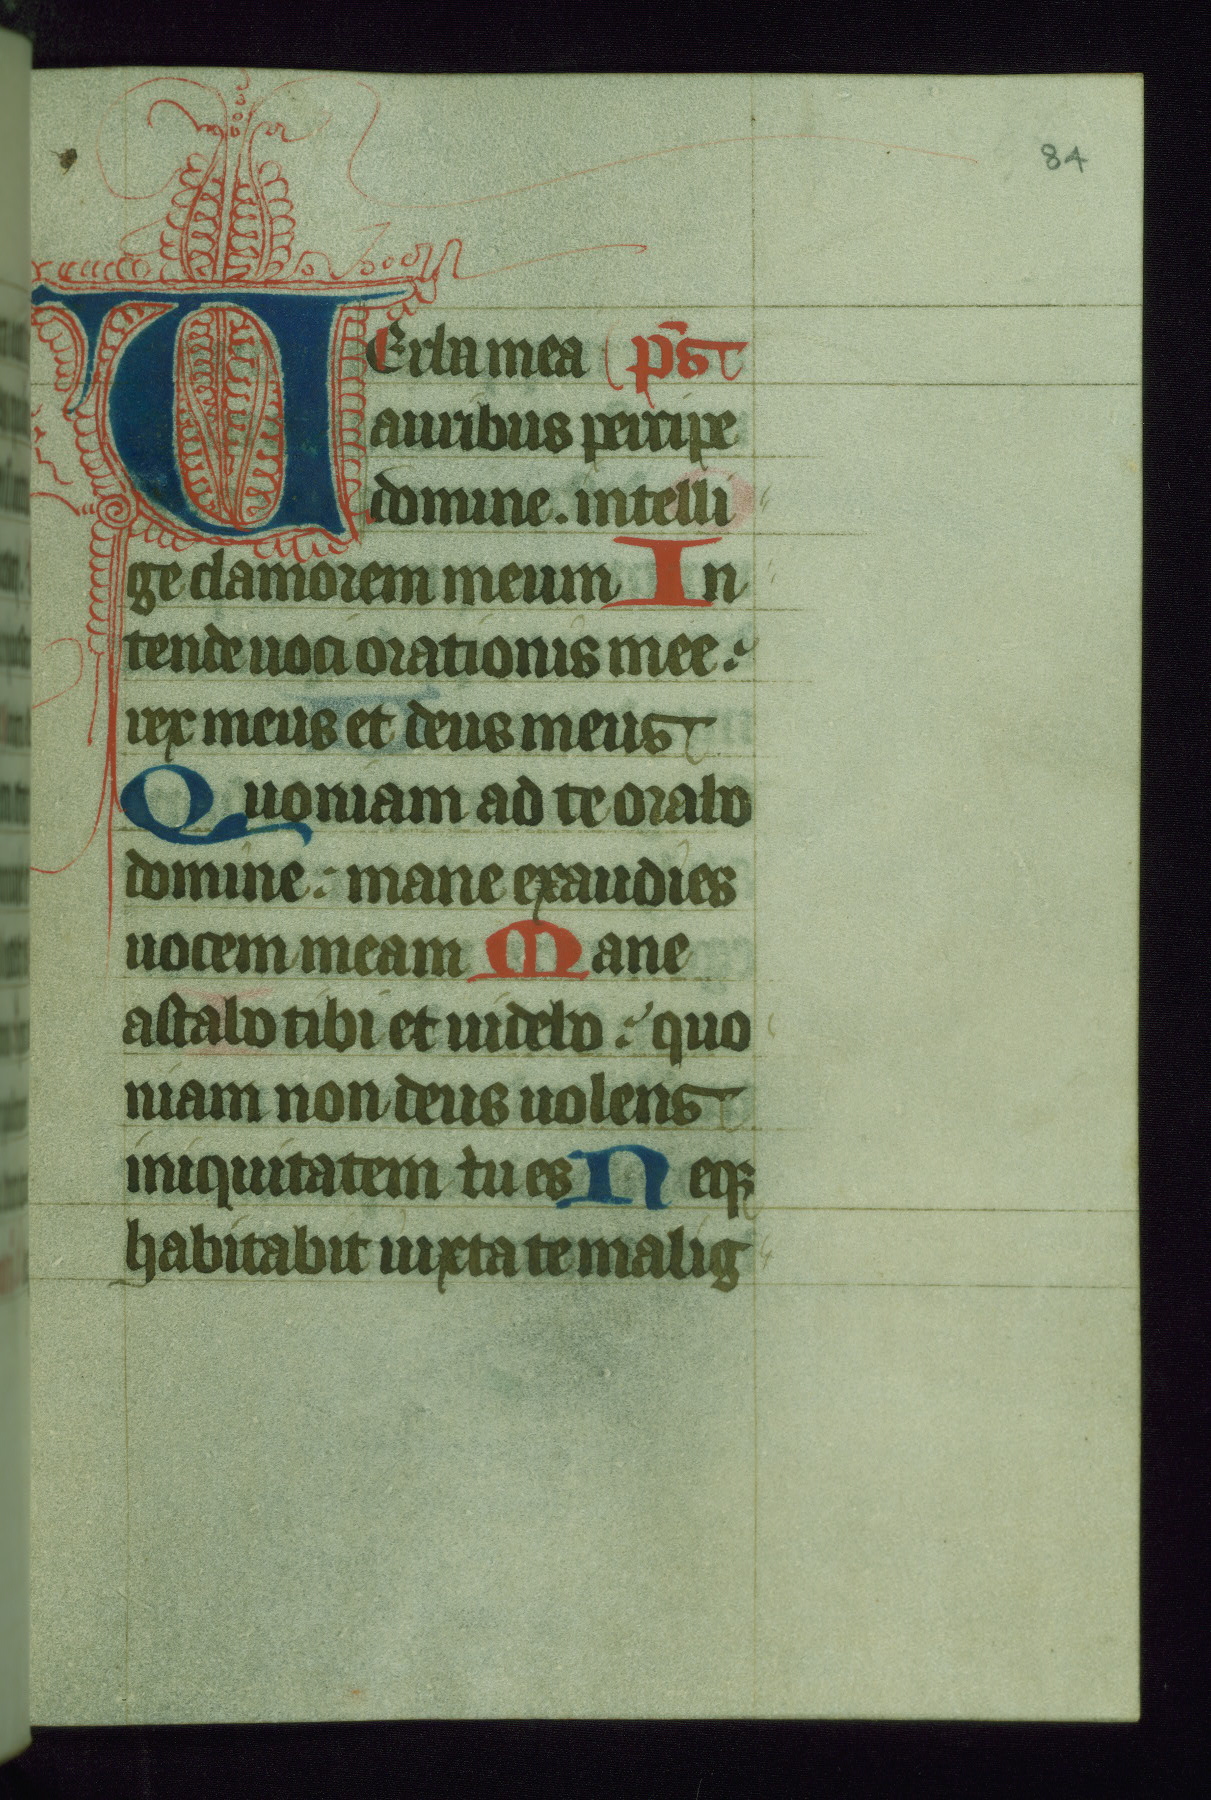 84
UErba mea ps
auribus percipe
domine. intelli
ge clamorem meum In
tende uoci orationis mee:
rex meus et deus meus
Quoniam ad te orabo
domine: mane exaudies
uocem meam Mane
astabo tibi et uidebo: quo
niam non deus uolens
iniquitatem tu es Neqꝫ
habitabit iuxta te malig